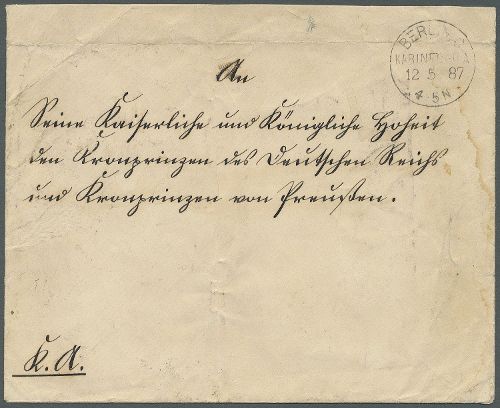 BERLIN C
KABINETSP.A
12 5 87
4-5N
An
Seine Kaiserliche und Königliche Hoheit
den Kronprinzen des Deutschen Reichs
und Kronprinzen von Preußen.
K. A.